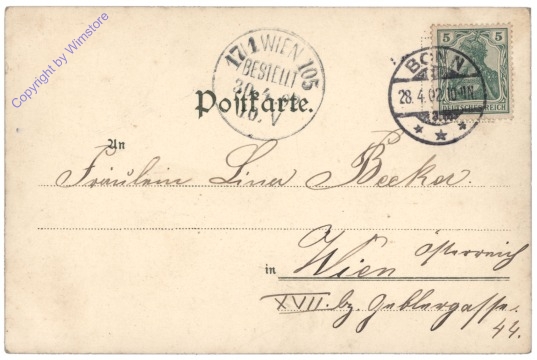 Copyright by Wimstore
17/1 WIEN 105
BESTELLT
5 5
DEUTSCHES REICH
BONN
28.4.02.10-11N.
Postkarte.
An
Fräulein Lina Becker.
in Wien Österreich
XVII. bz. Geblergasse.
44.